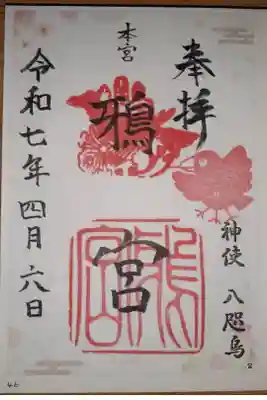 奉拝
神使 八咫烏
本宮
鴉宮
令和七年四月六日